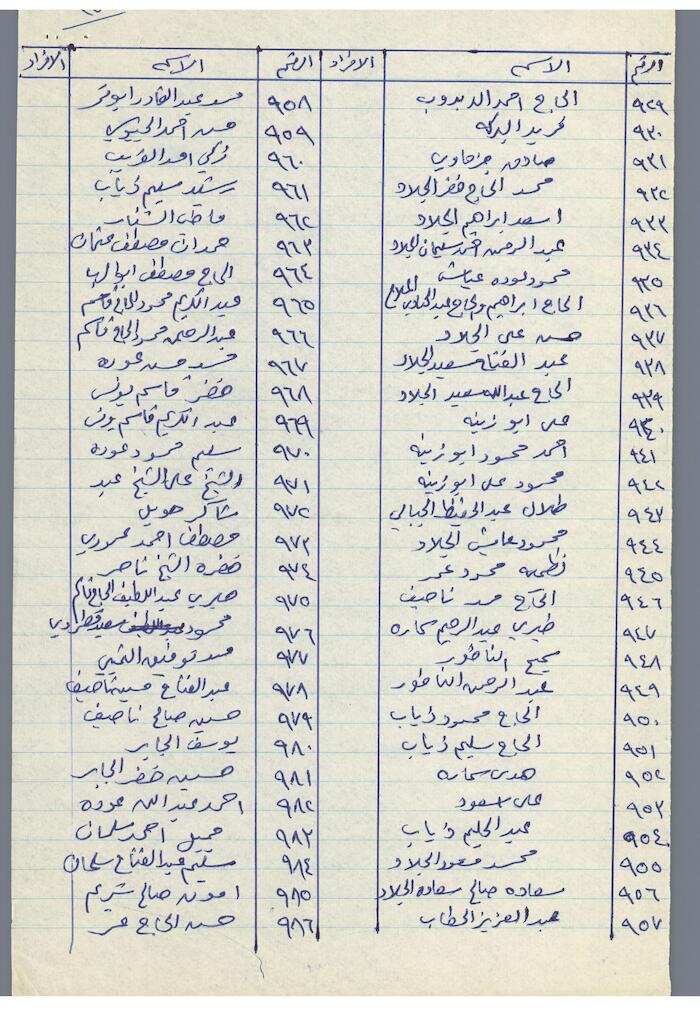 الرقم الاسم الافراد
٩٢٩ الحاج احمد الدبدوب
٩٣٠ فريد البركه
٩٣١ صادق جرماوي
٩٣٢ محمد الحاج خضر الجلاد
٩٣٣ اسعد ابراهيم الجلاد
٩٣٤ عبد الرحمن احمد سليمان الجلاد
٩٣٥ محمود عوده عياش
٩٣٦ الحاج ابراهيم والحاج عبد الهادي
٩٣٧ حسن علي الجلاد
٩٣٨ عبد الفتاح سعيد الجلاد
٩٣٩ الحاج عبد الله سعيد الجلاد
٩٤٠ علي ابو زينه
٩٤١ احمد محمود ابو زينه
٩٤٢ محمود علي ابو زينه
٩٤٣ طلال عبد الحفيظ الجبالي
٩٤٤ محمود عايش الجلاد
٩٤٥ نظميه محمود عمر
٩٤٦ الحاج محمد ناصيف
٩٤٧ خيري عبد الرحيم سماره
٩٤٨ سميح الناطور
٩٤٩ عبد الرحمن الناطور
٩٥٠ الحاج محمود ذياب
٩٥١ الحاج سليم ذياب
٩٥٢ هدى سماره
٩٥٣ علي اسعود
٩٥٤ عبد الحليم ذياب
٩٥٥ محمد مسعود الجلاد
٩٥٦ سعاده صالح سعاده الجلاد
٩٥٧ عبد العزيز الحطاب
الرقم الاسم الافراد
٩٥٨ محمد عبد القادر ابو عمر
٩٥٩ حسن احمد الجيوسي
٩٦٠ زكي احمد الغريب
٩٦١ رشيد سليم ذياب
٩٦٢ فاطمه الشنار
٩٦٣ حمدان مصطفى عثمان
٩٦٤ الحاج مصطفى ابو البها
٩٦٥ عبد الكريم محمود الحاج قاسم
٩٦٦ عبد الرحمن محمود الحاج قاسم
٩٦٧ محمد حسن عوده
٩٦٨ خضر قاسم يونس
٩٦٩ عبد الكريم قاسم يونس
٩٧٠ سليم محمود عوده
٩٧١ الشيخ علي الشيخ عبد
٩٧٢ شاكر هويل
٩٧٣ مصطفى احمد عمروري
٩٧٤ خضره الشيخ ناصر
٩٧٥ صبري عبد اللطيف الحاج قاسم
٩٧٦ محمود سعد
٩٧٧ محمد توفيق التميمي
٩٧٨ عبد الفتاح حسين ناصيف
٩٧٩ حسين صالح ناصيف
٩٨٠ يوسف الجابر
٩٨١ حسين خضر الجابر
٩٨٢ احمد عبد الله عوده
٩٨٣ جميل احمد سلمان
٩٨٤ سليم عبد الفتاح سلمان
٩٨٥ امون صالح شريم
٩٨٦ حسن الحاج عمر